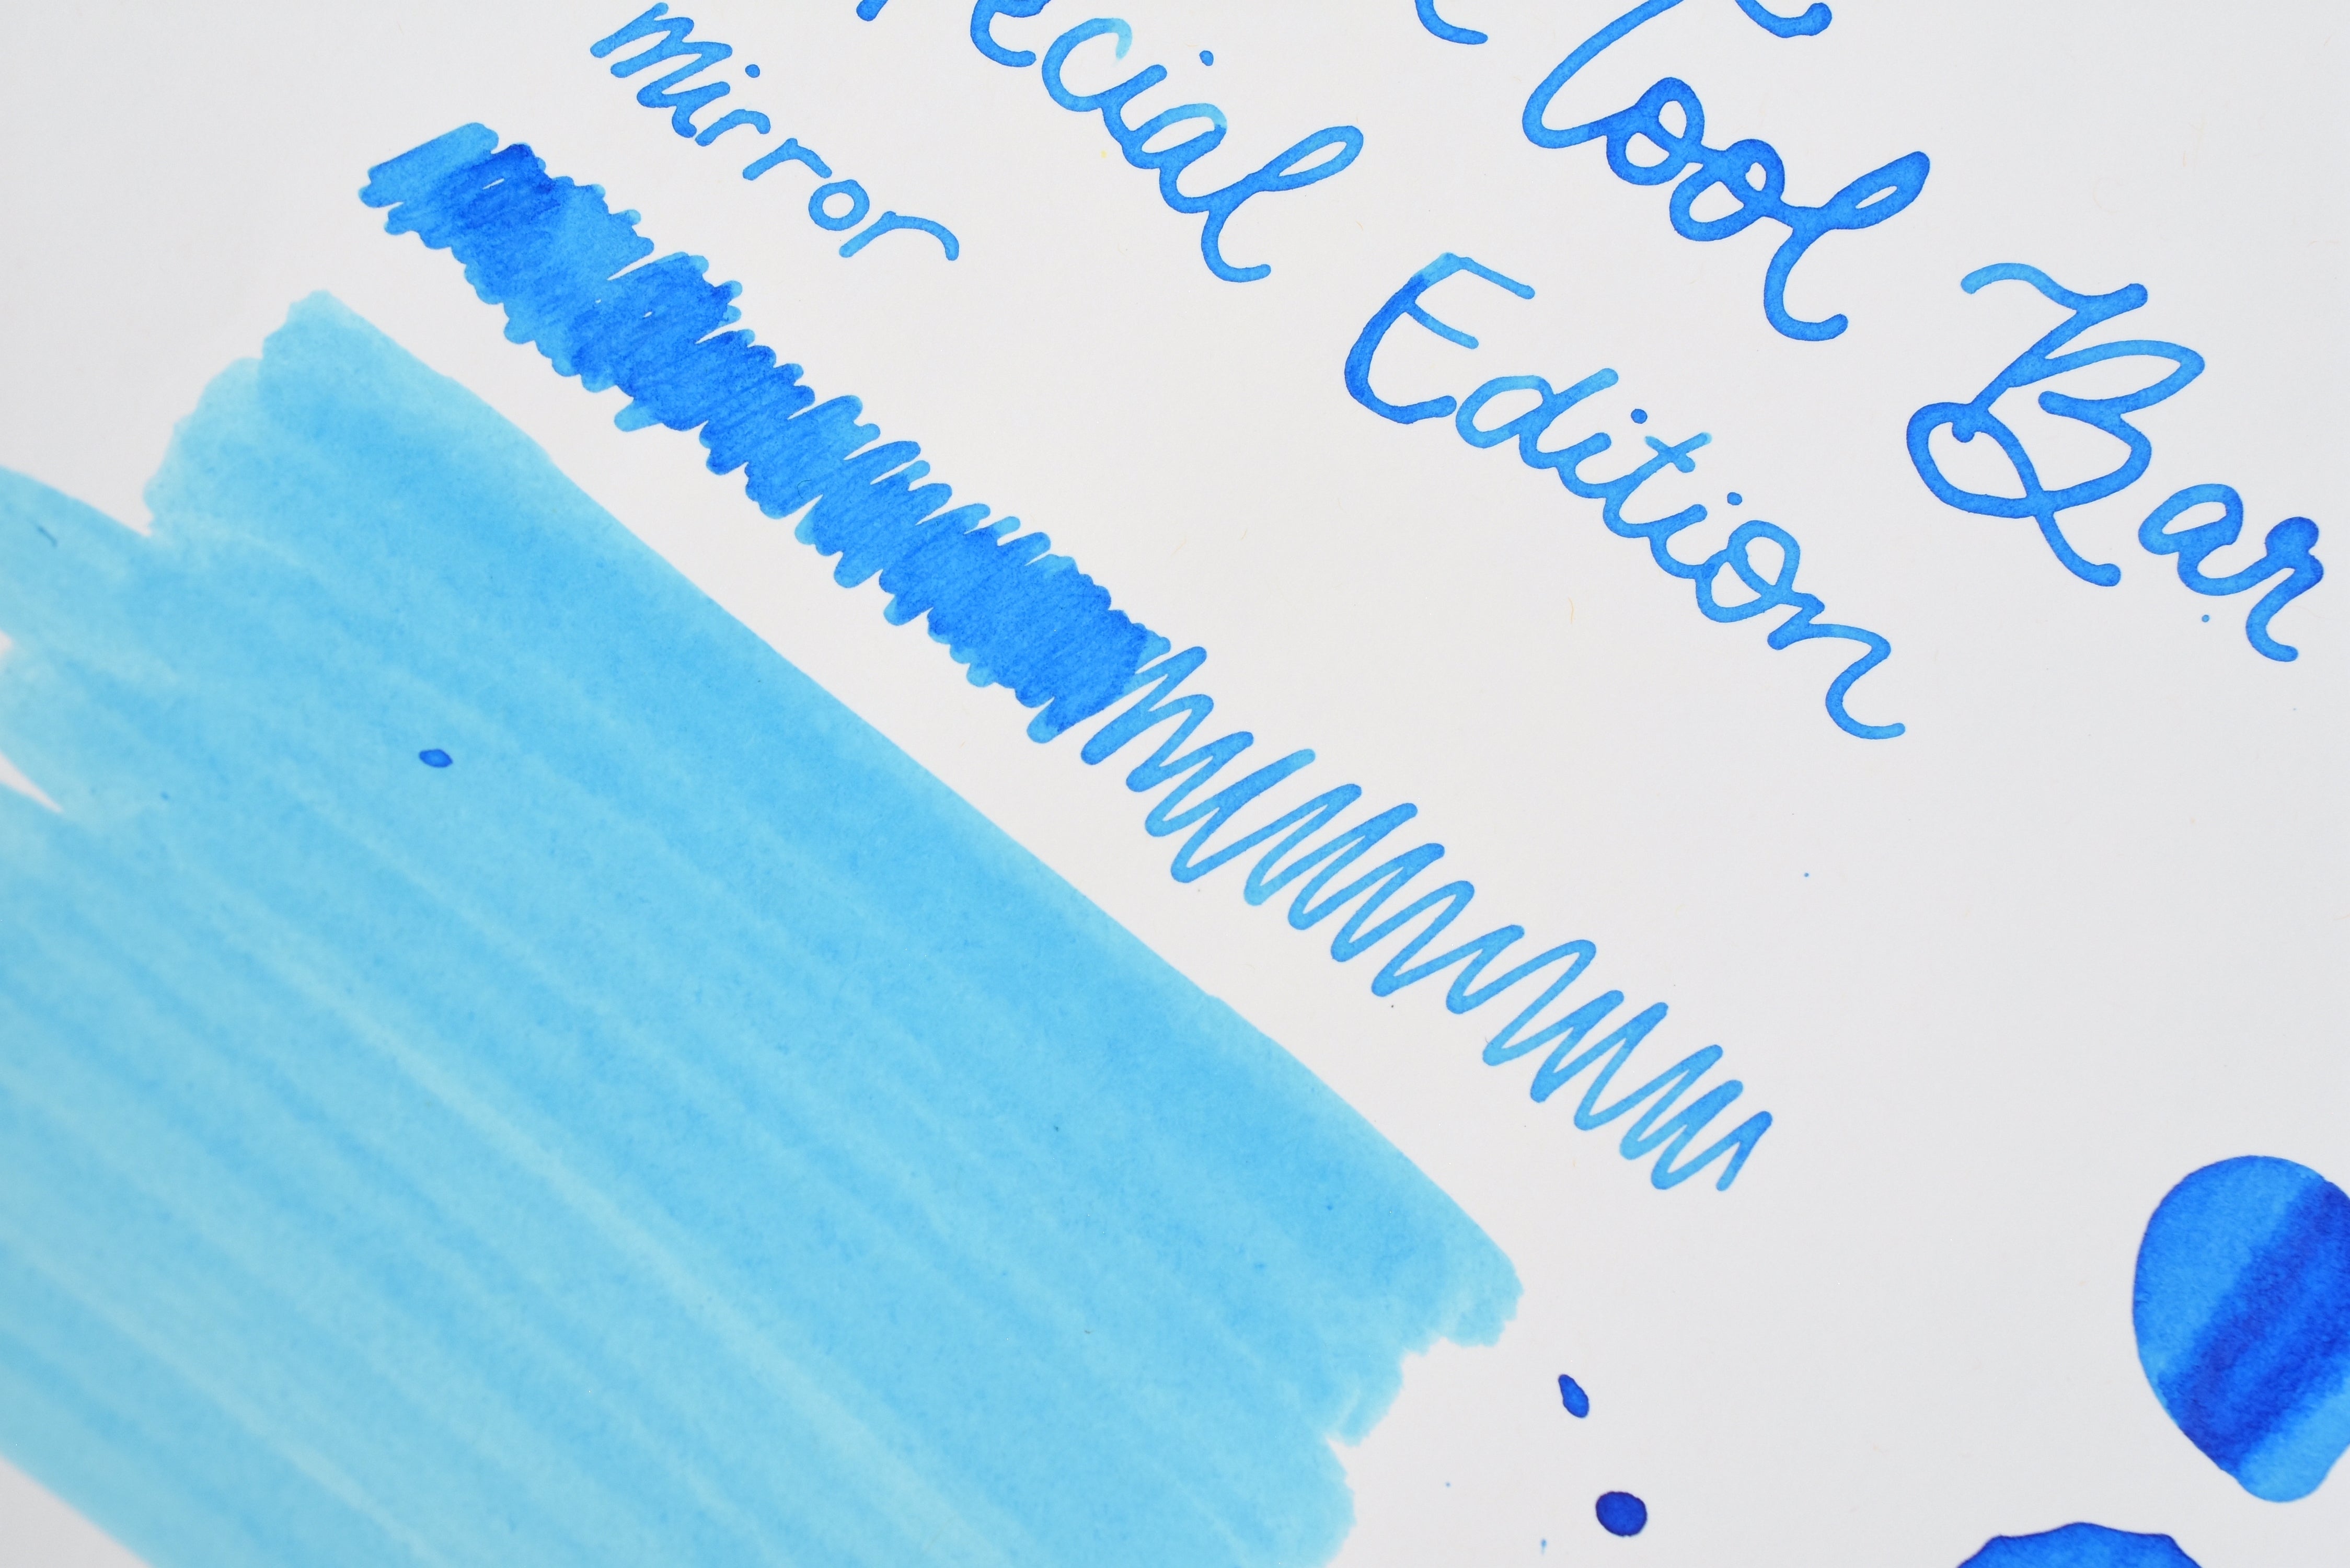 Cool Bar
Special Edition
mirror